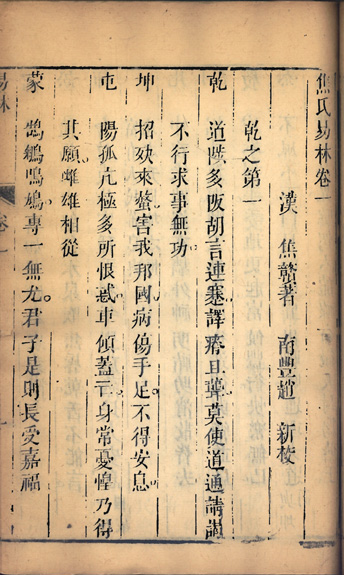 焦氏易林卷一
漢 焦贛著 南豐趙 新校
乾之第一
乾 道陟多阪胡言連蹇譯瘖且聾莫使道通請謁
不行求事無功
坤 招殃來螫害我邦國病傷手足不得安息
屯 陽孤亢極多所恨惑車傾蓋亡身常憂惶乃得
其願雌雄相從
蒙 鵠鵴鳲鳩專一無尤君子是則長受嘉福
易林
卷一